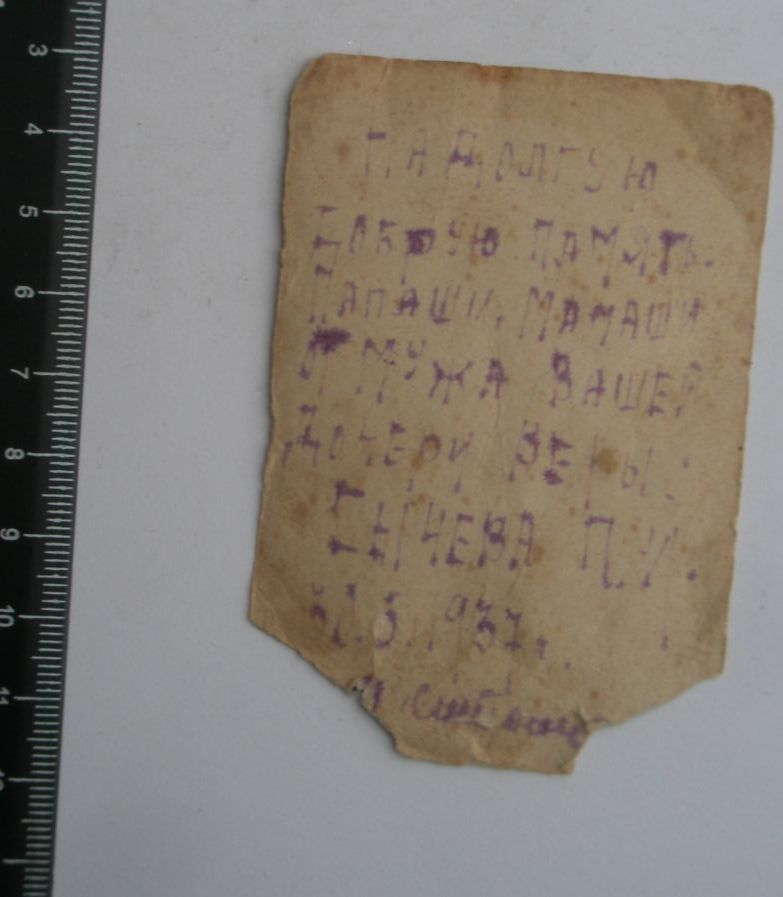 НА ДОЛГУЮ
ДОБРУЮ ПАМЯТЬ.
ПАПАШИ, МАМАШИ
МУЖА ВАШЕЙ
ДОЧЕРИ ВЕРЫ:
П.И.
30.5.1937.
3
4
5
6
7
8
9
10
11